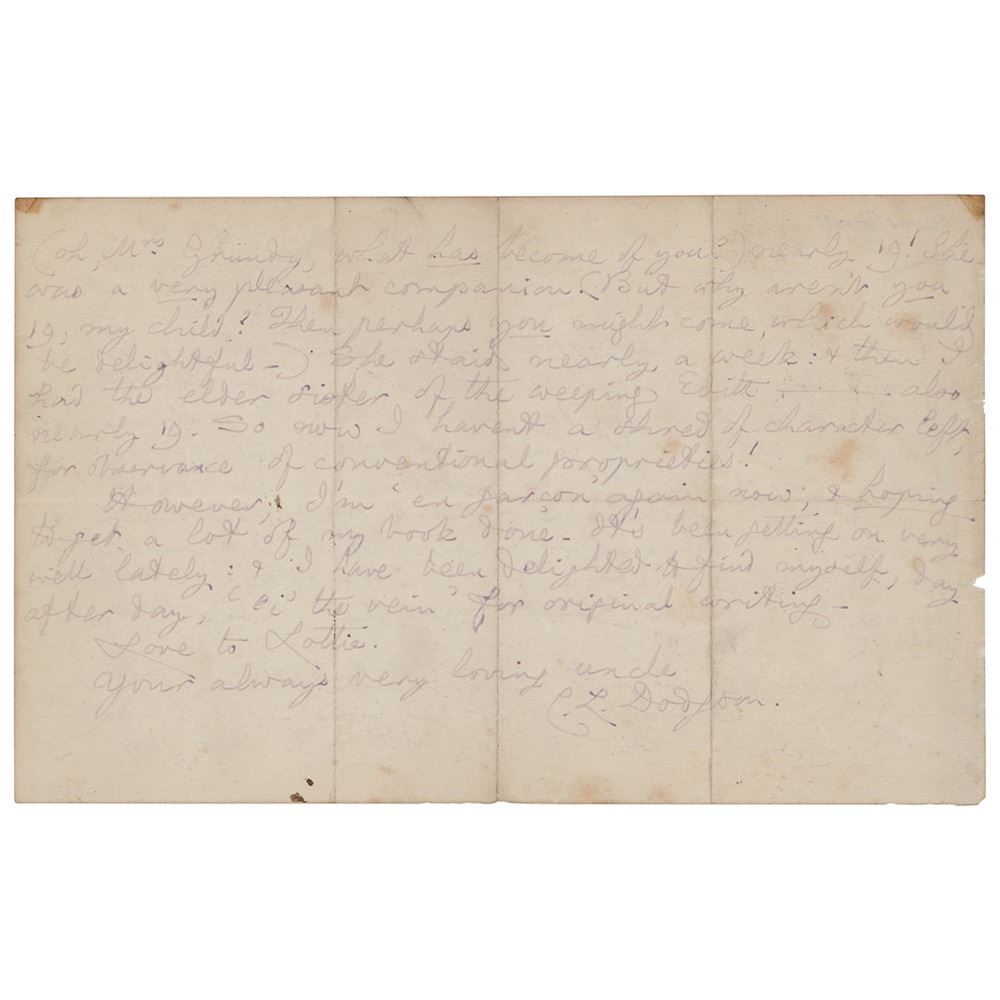 (oh, Mrs Grundy, what has become of you?) nearly 19! She
was a very pleasant companion. (But why aren't you
19, my child? Then perhaps you might come, which would
be delightful -) She staid nearly a week: & then I
had the elder sister of the weeping Edith also
nearly 19. So now I haven't a shred of character left,
for observance of conventional proprieties!
However, I'm 'en garçon' again now, & hoping
to get a lot of my book done. It's been getting on very
well lately: & I have been delighted to find myself, day
after day, 'i' the vein' for original writing -
Love to Lottie.
Your always very loving uncle
C. L. Dodgson.